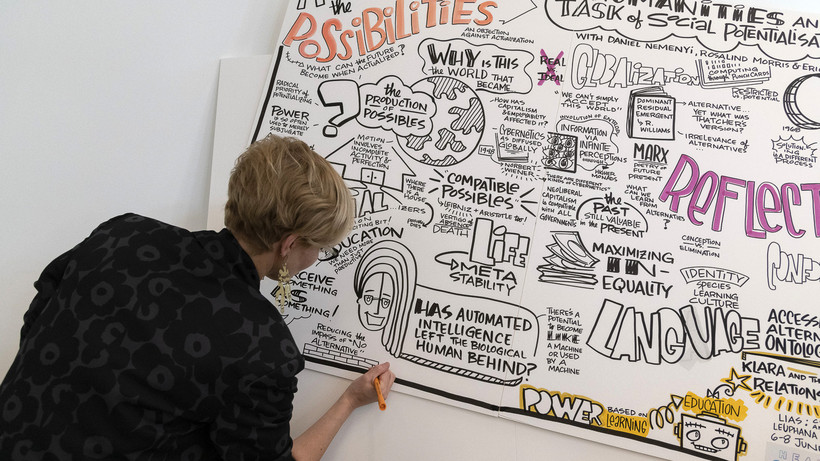 the
POSSIBILITIES
WHAT CAN the FUTURE
BECOME WHEN ACTUALIZED?
AN OBJECTION
AGAINST ACTUALIZATION
WHY is THIS
the WORLD THAT
BECAME
RADICAL
PRIORITY of
POTENTIALITY
POWER
IS SO OFTEN
USED to MERELY
SUBJUGATE
?
the
PRODUCTION
OF
POSSIBLES
MOTION
INVOLVES
INCOMPLETE
ACTIVITY &
PERFECTION
HOW HAS
CAPITALISM
& EMPORIALITY
AFFECTED IT?
CYBERNETICS
AS DIFFUSED
GLOBALLY
1948
NORBERT
WIENER
WHERE
THERE IS
A HOUSE
"COMPATIBLE
POSSIBLES"
LEIBNIZ
ARISTOTLE too!
DEATH
LIFE
META
STABILITY
EDUCATION
SOMETHING
AS
SOMETHING!
REDUCING the
IMPASS OF "NO
ALTERNATIVE"
HAS AUTOMATED
INTELLIGENCE
LEFT the BIOLOGICAL
HUMAN BEHIND?
HUMANITIES AND
TASK of SOCIAL POTENTIALISAT
WITH DANIEL NEMENYI, ROSALIND MORRIS & ERI
REAL
IDEAL
GLOBALIZATION
COMPUTING
through PUNCH CARDS
RESTRICTED
in POTENTIAL
WE CAN'T SIMPLY
ACCEPT
THIS WORLD!
DOMINANT
RESIDUAL
EMERGENT
R. WILLIAMS
ALTERNATIVE...
YET WHAT WAS
THATCHER'S
VERSION?
IRRELEVANCE OF
ALTERNATIVES
1968
SOLUTION
IN a
DIFFERENT
PROCESS
INFORMATION
VIA
INFINITE
PERCEPTIONS
HIGHER
MONADS
MARX
POETRY OF
FUTURE
PRESENT
THERE are DIFFERENT
KINDS of CYBERNETICS
NEOLIBERAL
CAPITALISM
IS COMPATIBLE
WITH ALL
GOVERNMENTS
the
PAST
STILL VALUABLE
in the PRESENT
WHAT CAN
WE LEARN
FROM
ALTERNATIVES
?
REFLECT
CONCEPTION
VS
ELIMINATION
MAXIMIZING
IN-
EQUALITY
IDENTITY
SPECIES
LEARNING
CULTURE
THERE'S A
POTENTIAL
to BECOME
LIKE
A MACHINE
OR USED
BY A
MACHINE
LANGUAGE
ACCESS
ALTERN
ONTOLOG
KLARA and the
RELATIONS
POWER BASED on
LEARNING
EDUCATION
LIAS; C
LEUPHANA
6-8 JUN